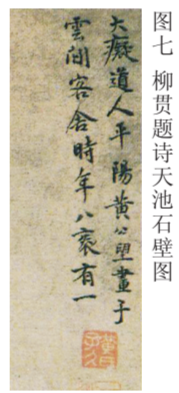 图七 柳贯题诗天池石壁图
大癡道人平陽黃公望畫于
雲間客舍時年八袠有一